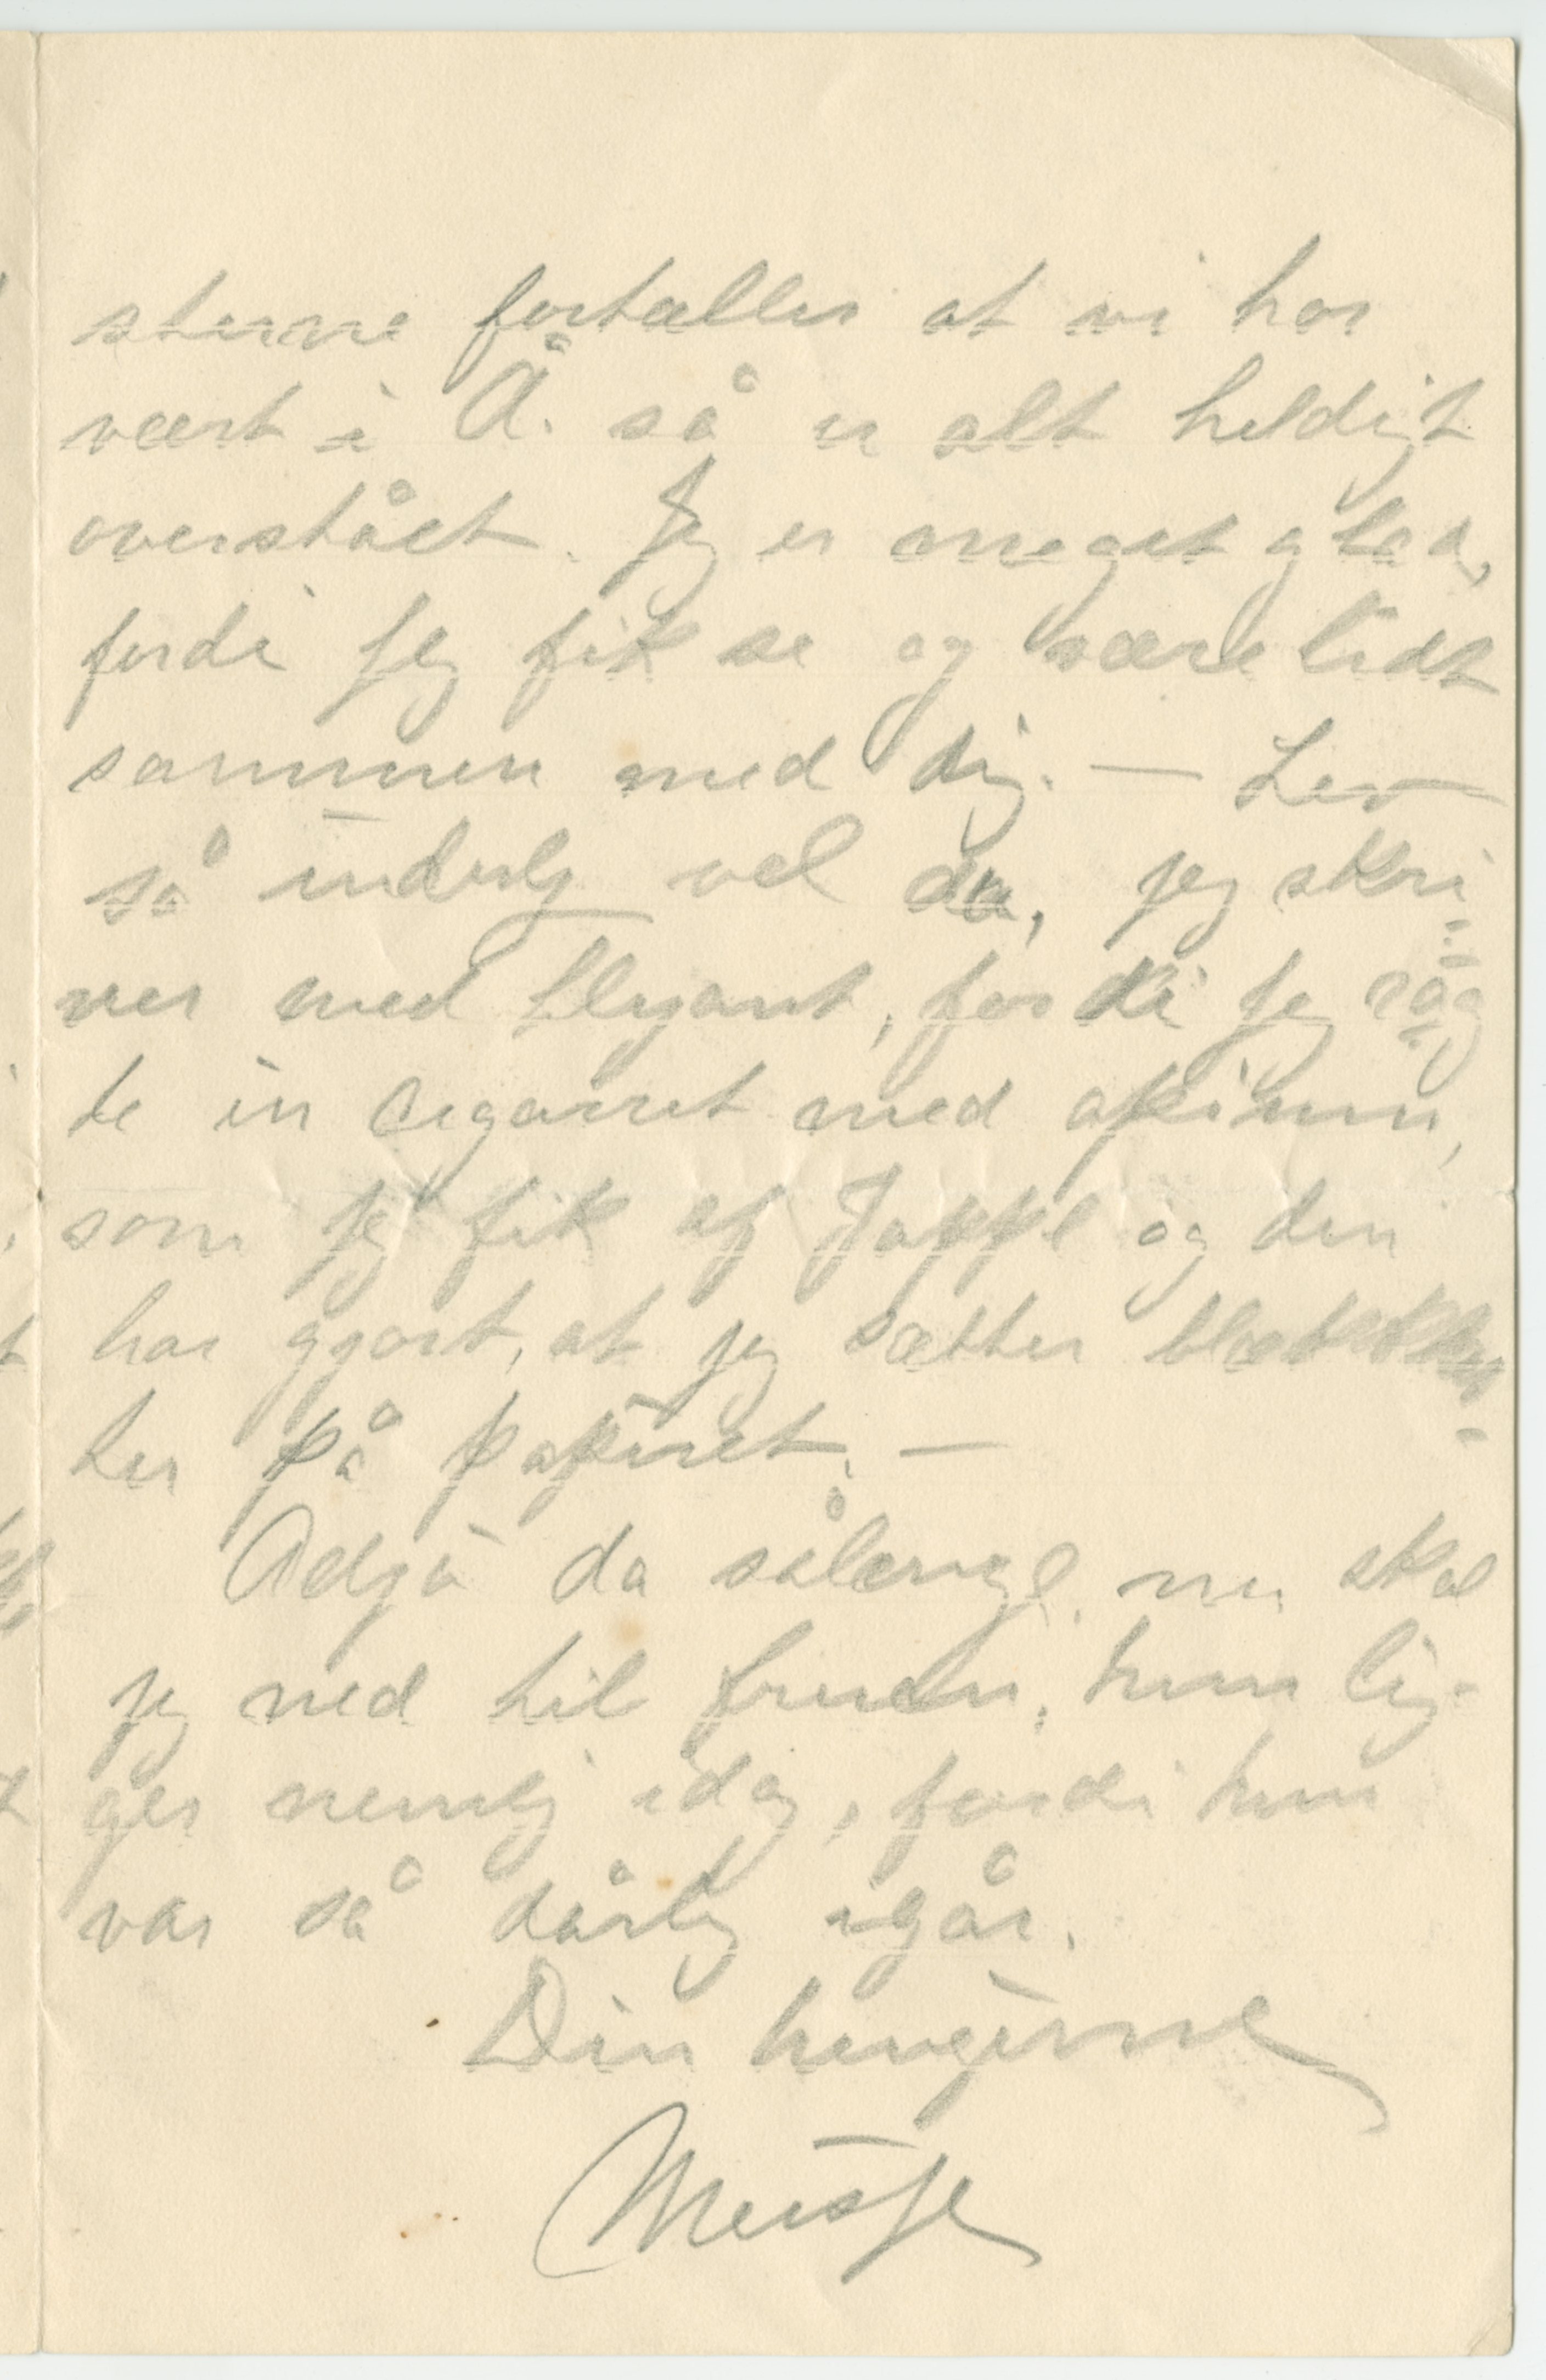 sterne fortæller at vi har
vært i Å. så er alt heldigt
overstået. Jeg er meget glad,
fordi jeg fik se og være lidt
sammen med dig. — Lev
så inderlig vel da, jeg skri-
ver med blyant, fordi jeg røg
te en cigarret med opium,
som jeg fik af Jappe og den
har gjort, at jeg sætter blæk
ter på papiret. —
Adjø da sålænge, nu skal
jeg ned til fruen, hun lig-
ger nemlig idag, fordi hun
var så dårlig igår.
Din hengivne
Musse